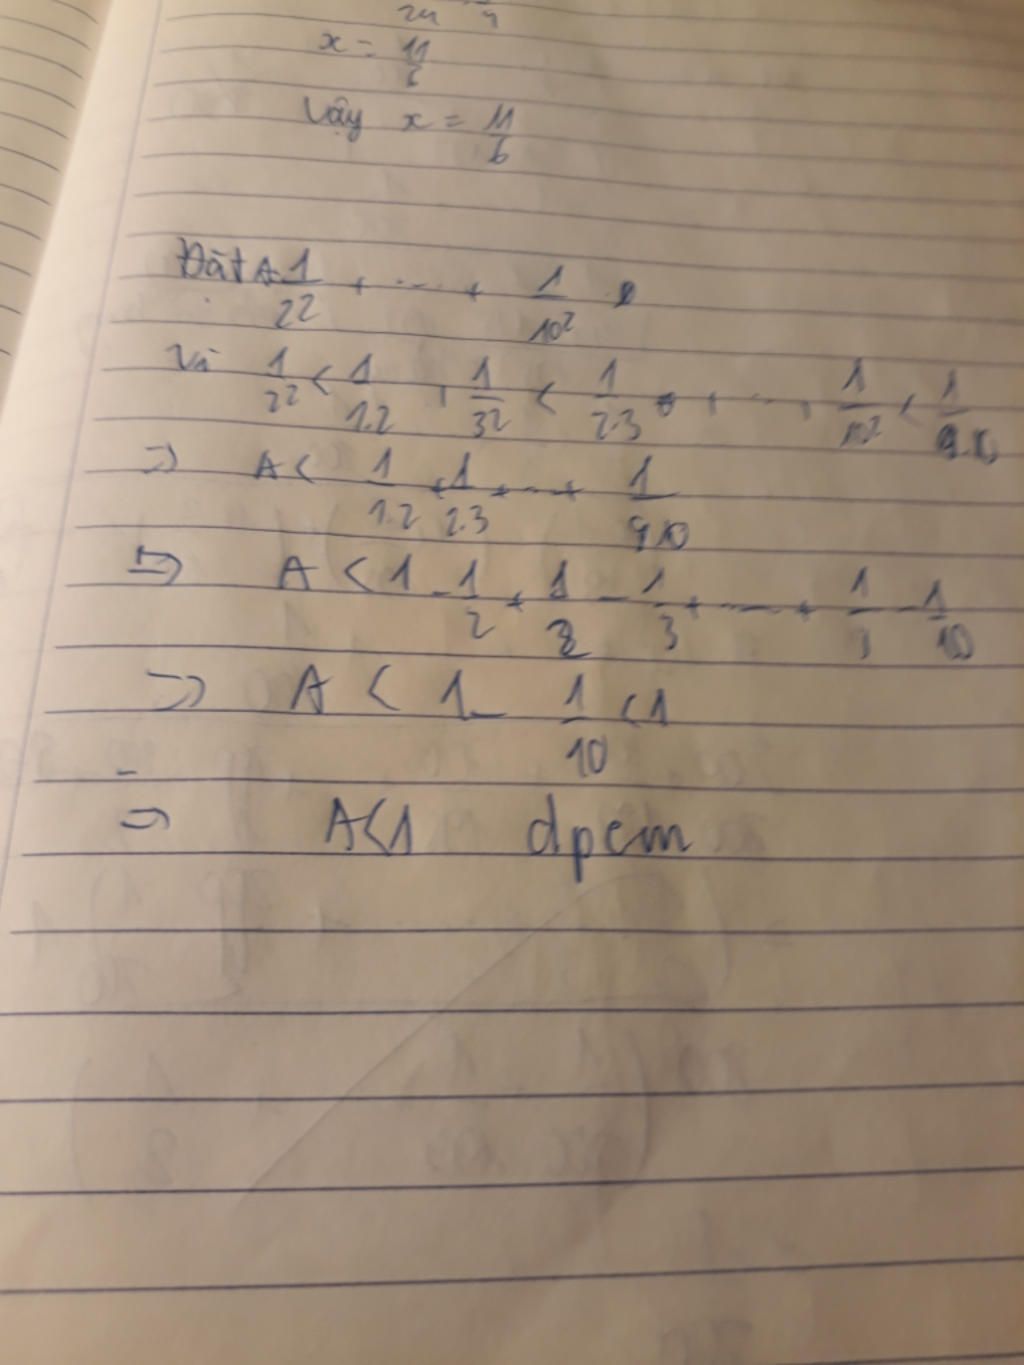 x = 11/6
Vậy x = 11/6
Đặt A 1/2² + ... + 1/10²
Vì 1/2² < 1/1.2 , 1/3² < 1/2.3 , ... , 1/10² < 1/9.10
=> A < 1/1.2 + 1/2.3 + ... + 1/9.10
=> A < 1 - 1/2 + 1/2 - 1/3 + ... + 1/9 - 1/10
=> A < 1 - 1/10 < 1
=> A < 1 dpcm